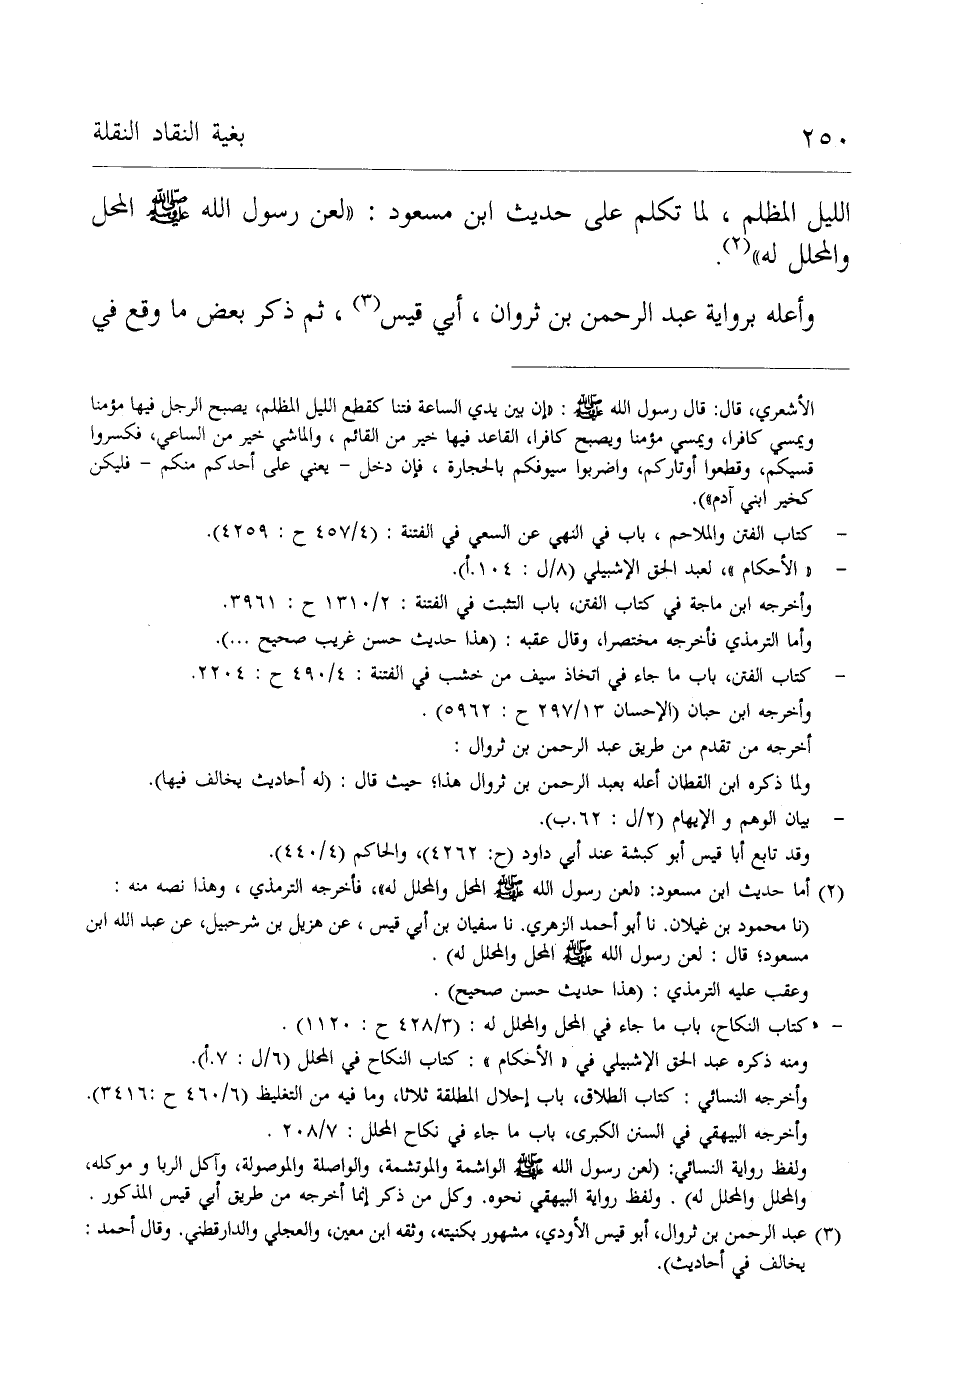 ٢٥٠ بغية النقاد النقلة
الليل المظلم ، لما تكلم على حديث ابن مسعود : «لعن رسول الله ﷺ المحل
والمحلل له»(٢).
وأعله برواية عبد الرحمن بن ثروان ، أبي قيس(٣) ، ثم ذكر بعض ما وقع في
الأشعري، قال: قال رسول الله ﷺ : «إن بين يدي الساعة فتنا كقطع الليل المظلم، يصبح الرجل فيها مؤمنا
ويمسي كافرا، ويمسي مؤمنا ويصبح كافرا، القاعد فيها خير من القائم ، والماشي خير من الساعي، فكسروا
قسيكم، وقطعوا أوتاركم، واضربوا سيوفكم بالحجارة ، فإن دخل - يعني على أحدكم منكم - فليكن
كخير ابني آدم»).
- كتاب الفتن والملاحم ، باب في النهي عن السعي في الفتنة : (٤٥٧/٤ ح : ٤٢٥٩).
- « الأحكام »، لعبد الحق الإشبيلي (٨/ل : ١٠٤.أ).
وأخرجه ابن ماجة في كتاب الفتن، باب التثبت في الفتنة : ١٣١٠/٢ ح : ٣٩٦١.
وأما الترمذي فأخرجه مختصرا، وقال عقبه : (هذا حديث حسن غريب صحيح ...).
- كتاب الفتن، باب ما جاء في اتخاذ سيف من خشب في الفتنة : ٤٩٠/٤ ح : ٢٢٠٤.
وأخرجه ابن حبان (الإحسان ٢٩٧/١٣ ح : ٥٩٦٢) .
أخرجه من تقدم من طريق عبد الرحمن بن ثروال :
ولما ذكره ابن القطان أعله بعبد الرحمن بن ثروال هذا؛ حيث قال : (له أحاديث يخالف فيها).
- بيان الوهم و الإيهام (٢/ل : ٦٢.ب).
وقد تابع أبا قيس أبو كبشة عند أبي داود (ح: ٤٢٦٢)، والحاكم (٤٤٠/٤).
(٢) أما حديث ابن مسعود: «لعن رسول الله ﷺ المحل والمحلل له»، فأخرجه الترمذي ، وهذا نصه منه :
(نا محمود بن غيلان. نا أبو أحمد الزهري. نا سفيان بن أبي قيس ، عن هزيل بن شرحبيل، عن عبد الله ابن
مسعود؛ قال : لعن رسول الله ﷺ المحل والمحلل له) .
وعقب عليه الترمذي : (هذا حديث حسن صحيح) .
- « كتاب النكاح، باب ما جاء في المحل والمحلل له : (٤٢٨/٣ ح : ١١٢٠) .
ومنه ذكره عبد الحق الإشبيلي في « الأحكام » : كتاب النكاح في المحلل (٦/ل : ٧.أ).
وأخرجه النسائي : كتاب الطلاق، باب إحلال المطلقة ثلاثا، وما فيه من التغليظ (٤٦٠/٦ ح :٣٤١٦).
وأخرجه البيهقي في السنن الكبرى، باب ما جاء في نكاح المحلل : ٢٠٨/٧ .
ولفظ رواية النسائي: (لعن رسول الله ﷺ الواشمة والموتشمة، والواصلة والموصولة، وآكل الربا و موكله،
والمحلل والمحلل له) . ولفظ رواية البيهقي نحوه. وكل من ذكر إنما أخرجه من طريق أبي قيس المذكور .
(٣) عبد الرحمن بن ثروال، أبو قيس الأودي، مشهور بكنيته، وثقه ابن معين، والعجلي والدارقطني. وقال أحمد :
يخالف في أحاديث).